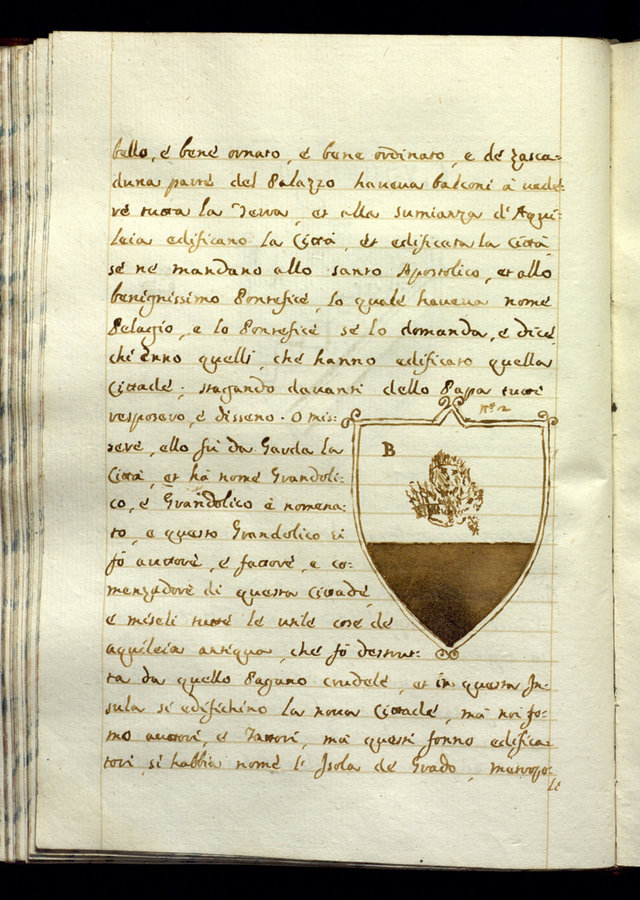 bello, é bené ornato, é bene ordinato, e dé zasca-
duna parté del Palazzo haveva balconi à vedé-
ré tutta la Terra, et alla sumianza d'Aqui-
leia edificano la Città, ét edificata la Città
sé né mandano allo santo Apostolico, et allo
benignissimo Pontefice, lo qualé haveva nomé
Pelagio, e lo Pontefice sé lo domanda, é dicé,
chi énno quelli, ché hanno edificato quella
Cittadé; stagando davanti dello Papa tutti
resposero, é disseno. O mis-
seré, ello fù da Garda la
Città, et hà nomé Grandoli-
co, é Grandolico è nomena-
to, e questo Grandolico si
fò auttoré, é fattoré, e co-
menzadoré di questa Cittadé,
e miseli tutté lé utile cose dé
aquileia antiqua, ché fò destrut-
ta da quello Pagano crudelé, et in questa In-
sula si edifichino la nova Cittadé, mà noi fo-
mo auttori é fattori, mà questi fonno edifica-
tori, si habbia nomé l'Isola dé Grado, metropo-
li
n.º 2
B